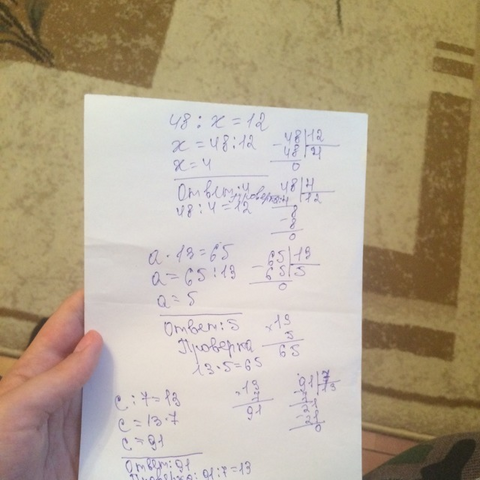 48 : x = 12
x = 48 : 12
48 | 12
- 48 | 4
0
x = 4
Ответ: 4
Проверка
48 : 4 = 12
48 | 4
4 | 12
8
- 8
0
a · 13 = 65
a = 65 : 13
65 | 13
- 65 | 5
0
a = 5
Ответ: 5
Проверка
13 · 5 = 65
× 13
5
65
c : 7 = 13
c = 13 · 7
c = 91
× 13
7
91
- 91 | 7
7 | 13
21
- 21
0
Ответ: 91
Проверка: 91 : 7 = 13